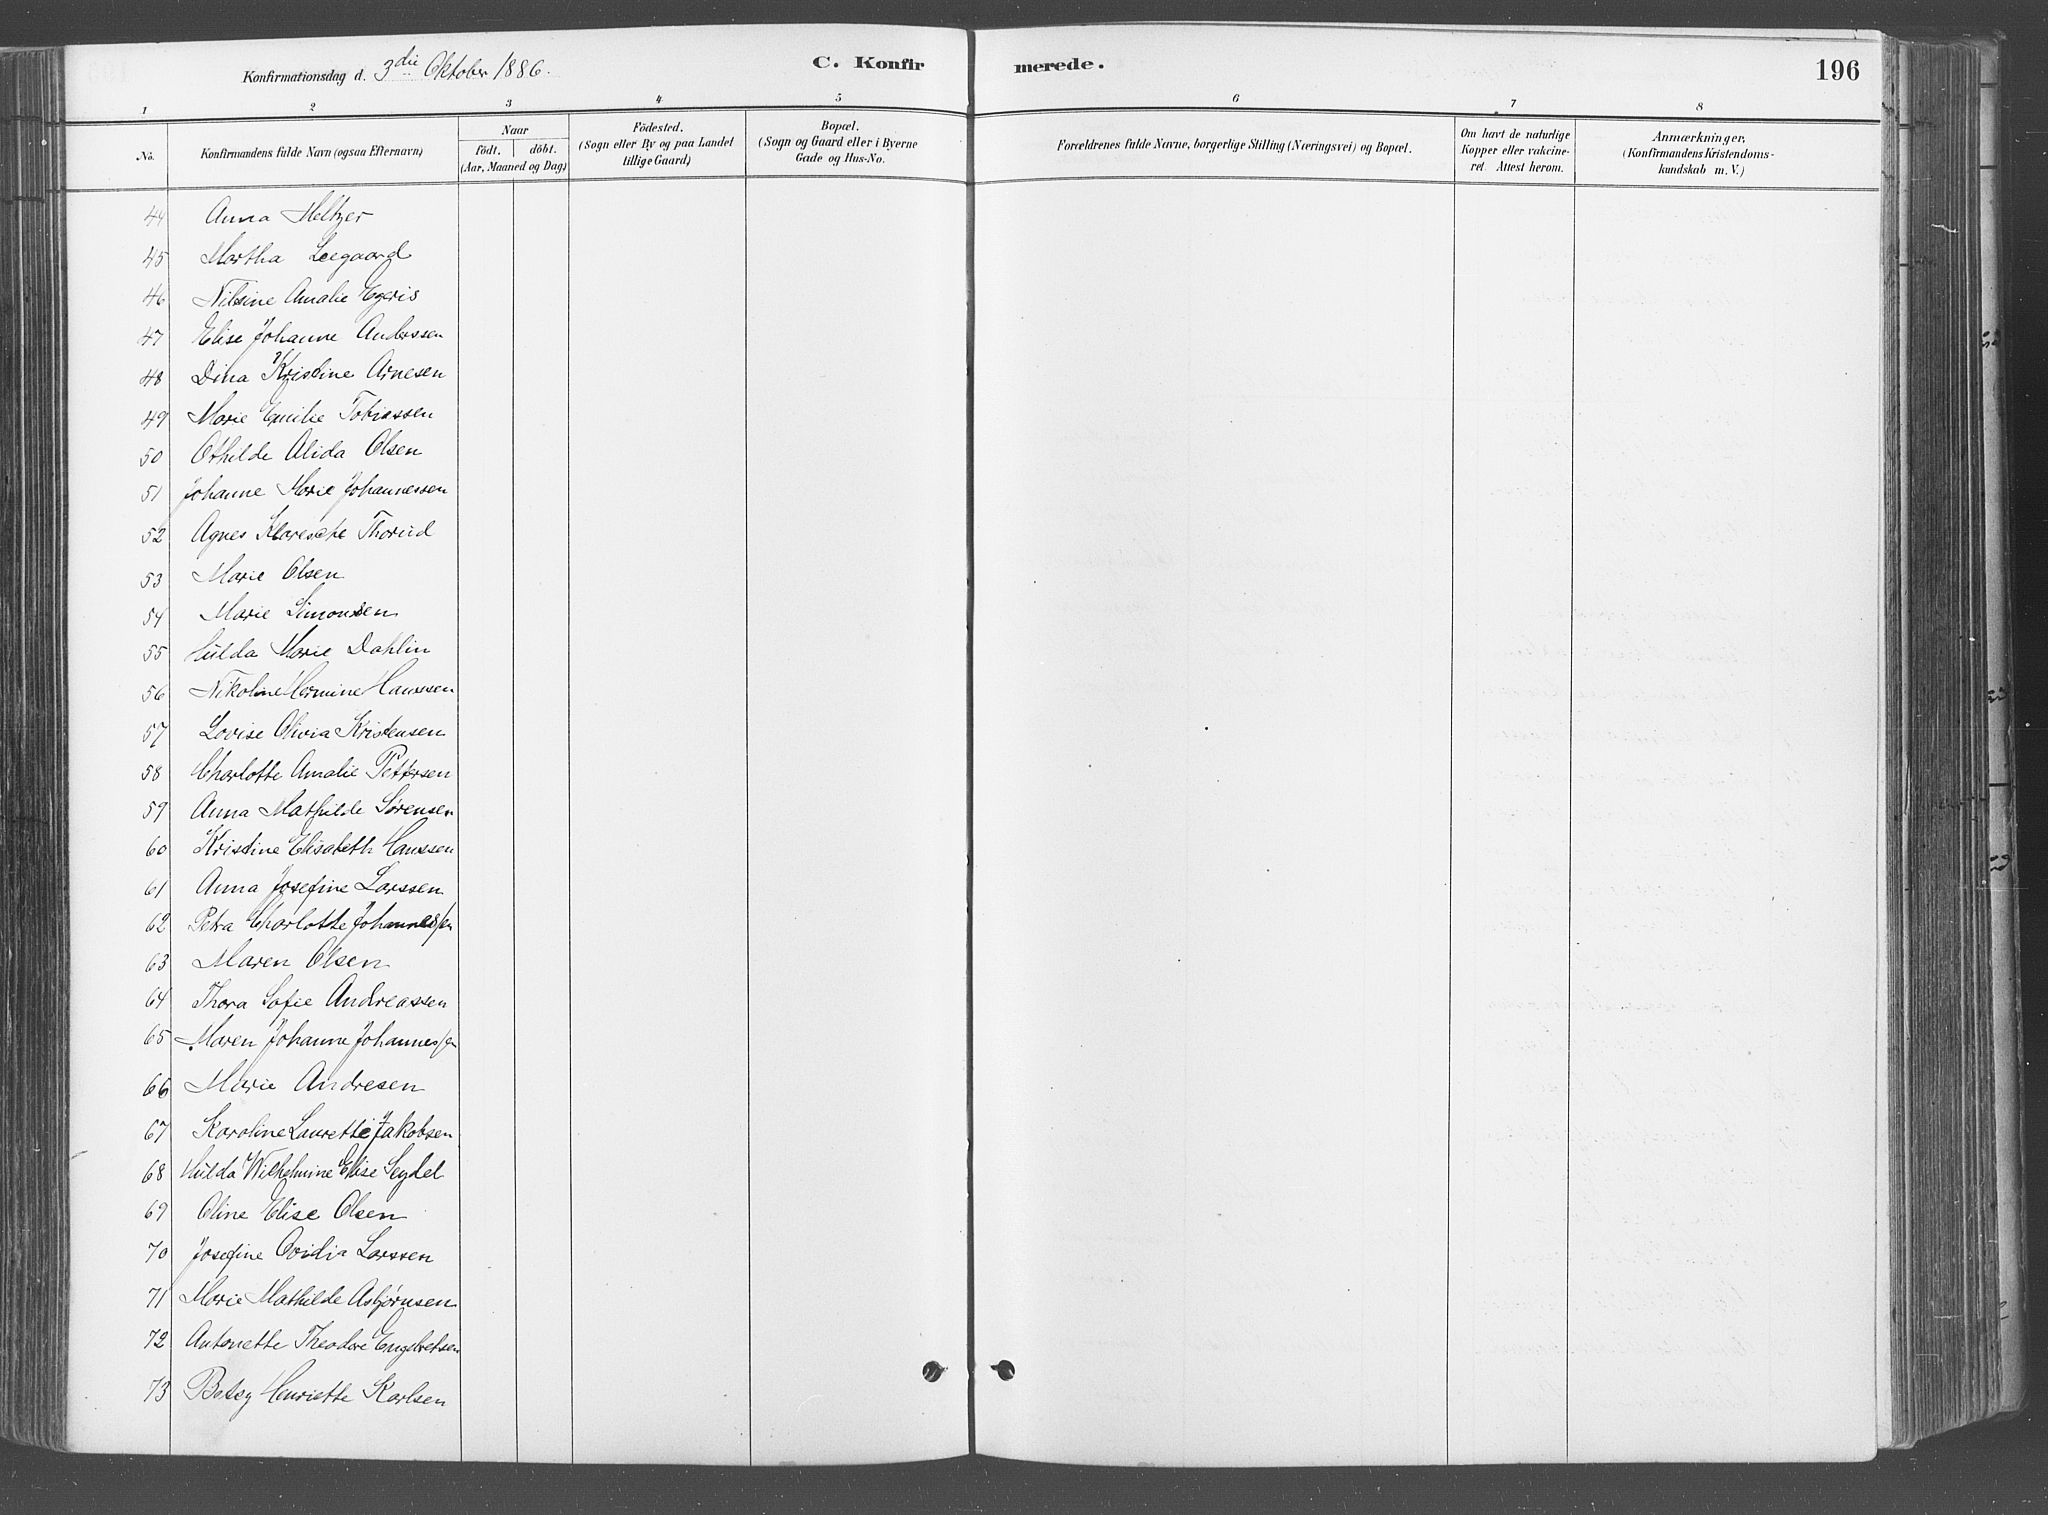 Konfirmationsdag d. 3die Oktober 1886.
C. Konfir
merede.
196
1 2 3 4 5 6 7 8
No.
Konfirmandens fulde Navn (ogsaa Efternavn)
Naar
födt. döbt.
(Aar, Maaned og Dag)
Födested.
(Sogn eller By og paa Landet
tillige Gaard)
Bopæl.
(Sogn og Gaard eller i Byerne
Gade og Hus-No.
Forældrenes fulde Navne, borgerlige Stilling (Næringsvei) og Bopæl.
Om havt de naturlige
Kopper eller vakcine-
ret. Attest herom.
Anmærkninger,
(Konfirmandens Kristendoms-
kundskab m. V.)
44 Anna Meltzer
45 Martha Leegaard
46 Nilsine Amalie Egeris
47 Elise Johanne Anderssen
48 Dina Kristine Arnesen
49 Marie Emilie Tobiassen
50 Othilde Alida Olsen
51 Johanne Marie Johannessen
52 Agnes Thorud
53 Marie Olsen
54 Marie Simonsen
55 Hulda Marie Dahlin
56 Nikoline Hermine Hanssen
57 Lovise Olivia Kristensen
58 Charlotte Amalie Pettersen
59 Anna Mathilde Sørensen
60 Kristine Elisabeth Hanssen
61 Anna Josefine Larssen
62 Petra Charlotte Johannessen
63 Maren Olsen
64 Thora Sofie Andreassen
65 Maren Johanne Johannessen
66 Marie Andresen
67 Karoline Laurette Jakobsen
68 Hulda Wilhelmine Elise Seydel
69 Oline Elise Olsen
70 Josefine Ovidia Larssen
71 Marie Mathilde Asbjørnsen
72 Antonette Theodore Engebretsen
73 Betsy Henriette Karlsen